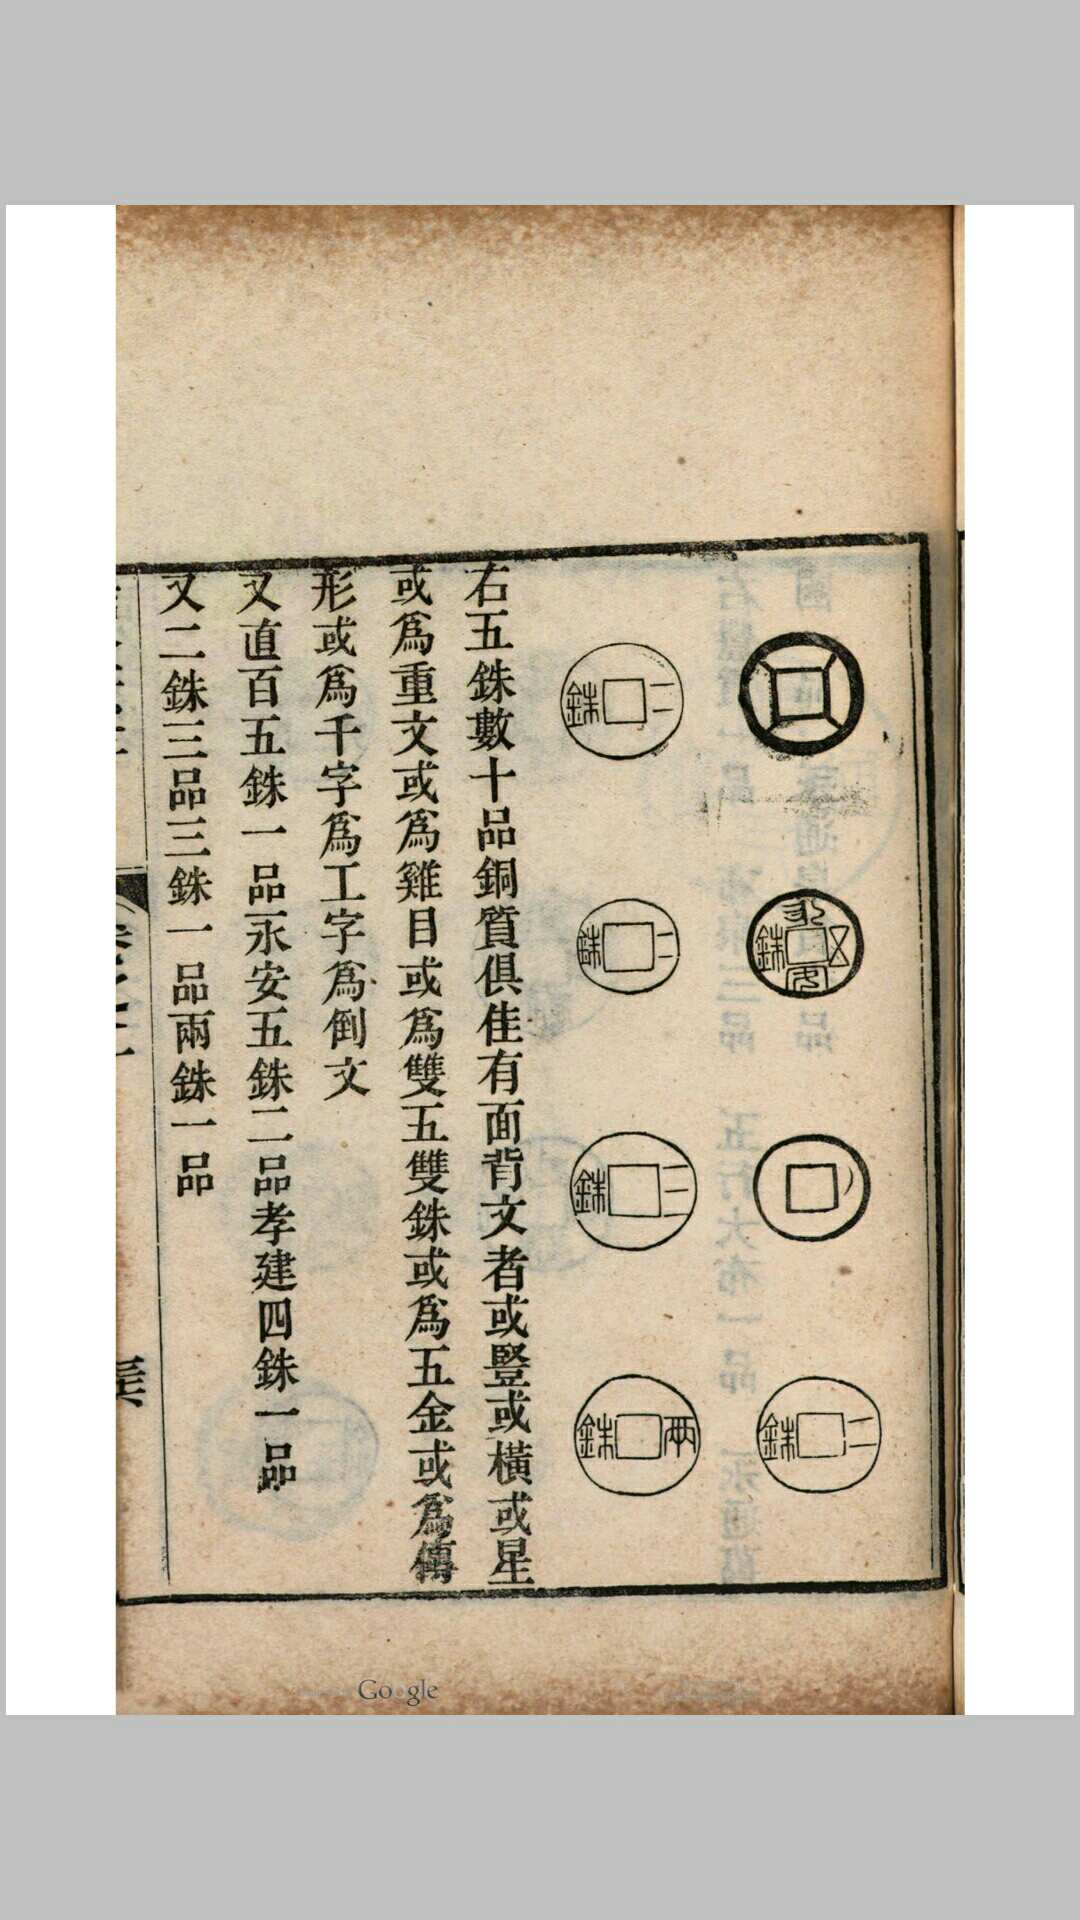 永安五銖
二銖
二銖
二銖
三銖
兩銖
右五銖數十品銅質俱佳有面背文者或豎或橫或星
或爲重文或爲雞目或爲雙五雙銖或爲五金或爲傳
形或爲千字爲工字爲倒文
又直百五銖一品永安五銖二品孝建四銖一品
又二銖三品三銖一品兩銖一品
Google